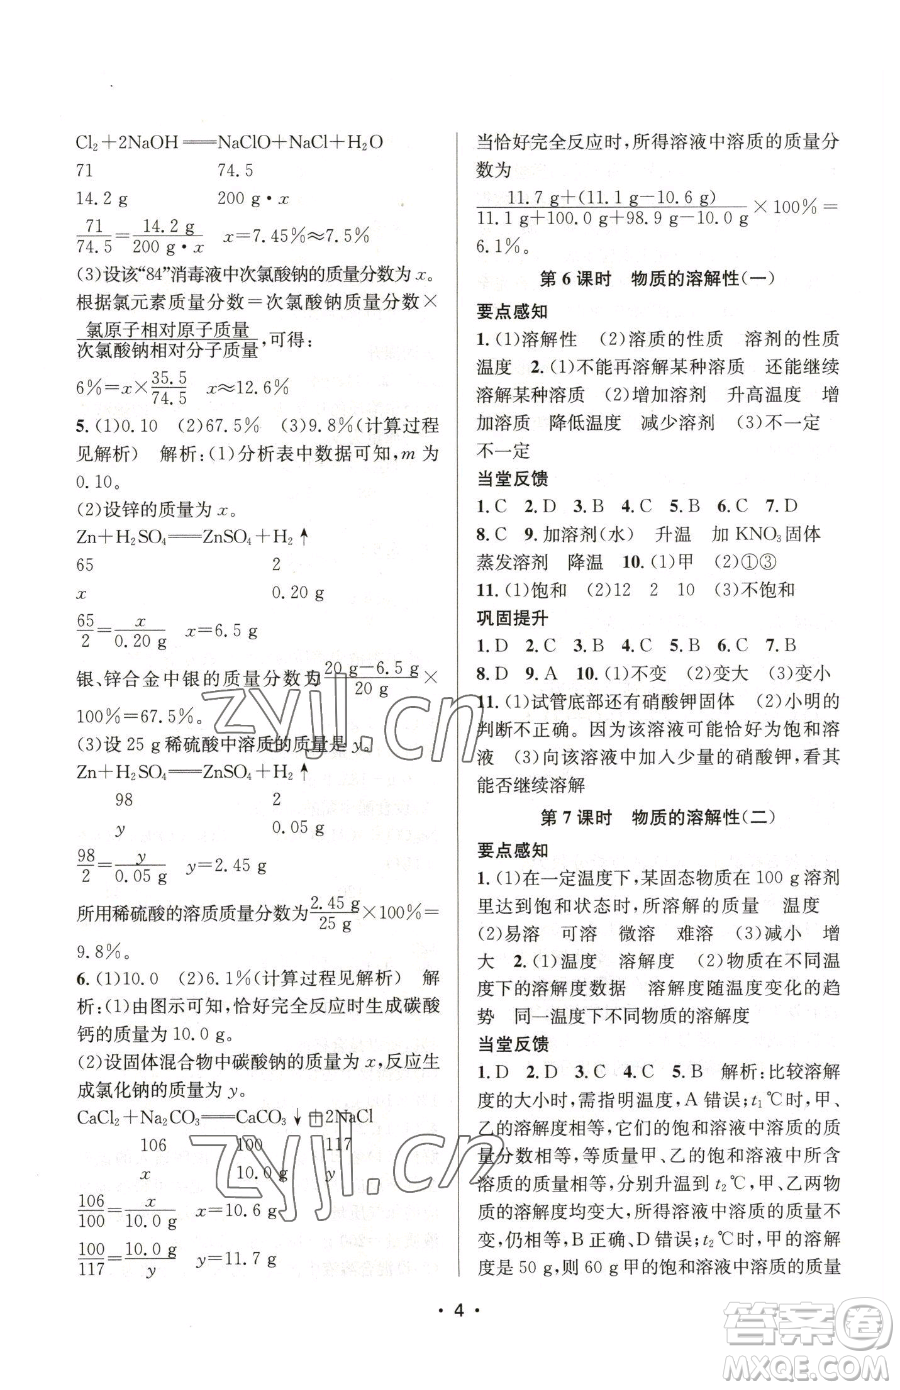 Cl₂+2NaOH══NaClO+NaCl+H₂O
71 74.5
14.2 g 200 g·x
71/74.5=14.2 g/200 g·x x=7.45%≈7.5%
(3)设该“84”消毒液中次氯酸钠的质量分数为 x。
根据氯元素质量分数=次氯酸钠质量分数×
氯原子相对原子质量/次氯酸钠相对分子质量,可得:
6%=x×35.5/74.5 x≈12.6%
5.(1)0.10 (2)67.5% (3)9.8%(计算过程
见解析) 解析:(1)分析表中数据可知,m 为
0.10。
(2)设锌的质量为 x。
Zn+H₂SO₄══ZnSO₄+H₂↑
65 2
x 0.20 g
65/2=x/0.20 g x=6.5 g
银、锌合金中银的质量分数为20 g-6.5 g/20 g×
100%=67.5%。
(3)设 25 g 稀硫酸中溶质的质量是 y。
Zn+H₂SO₄══ZnSO₄+H₂↑
98 2
y 0.05 g
98/2=y/0.05 g y=2.45 g
所用稀硫酸的溶质质量分数为2.45 g/25 g×100%=
9.8%。
6.(1)10.0 (2)6.1%(计算过程见解析) 解
析:(1)由图示可知,恰好完全反应时生成碳酸
钙的质量为 10.0 g。
(2)设固体混合物中碳酸钠的质量为 x,反应生
成氯化钠的质量为 y。
CaCl₂+Na₂CO₃══CaCO₃↓+2NaCl
106 100 117
x 10.0 g y
106/100=x/10.0 g x=10.6 g
100/117=10.0 g/y y=11.7 g
当恰好完全反应时,所得溶液中溶质的质量分
数为
11.7 g+(11.1 g-10.6 g)/11.1 g+100.0 g+98.9 g-10.0 g×100%=
6.1%。
第 6 课时 物质的溶解性(一)
要点感知
1.(1)溶解性 (2)溶质的性质 溶剂的性质
温度 2.(1)不能再溶解某种溶质 还能继续
溶解某种溶质 (2)增加溶剂 升高温度 增
加溶质 降低温度 减少溶剂 (3)不一定
不一定
当堂反馈
1.C 2.D 3.B 4.C 5.B 6.C 7.D
8.C 9.加溶剂(水) 升温 加 KNO₃固体
蒸发溶剂 降温 10.(1)甲 (2)①③
11.(1)饱和 (2)12 2 10 (3)不饱和
巩固提升
1.D 2.C 3.D 4.B 5.B 6.C 7.B
8.D 9.A 10.(1)不变 (2)变大 (3)变小
11.(1)试管底部还有硝酸钾固体 (2)小明的
判断不正确。因为该溶液可能恰好为饱和溶
液 (3)向该溶液中加入少量的硝酸钾,看其
能否继续溶解
第 7 课时 物质的溶解性(二)
要点感知
1.(1)在一定温度下,某固态物质在 100 g 溶剂
里达到饱和状态时,所溶解的质量 温度
(2)易溶 可溶 微溶 难溶 (3)减小 增
大 2.(1)温度 溶解度 (2)物质在不同温
度下的溶解度数据 溶解度随温度变化的趋
势 同一温度下不同物质的溶解度
当堂反馈
1.D 2.D 3.C 4.C 5.B 解析:比较溶解
度的大小时,需指明温度,A 错误;t₁℃时,甲、
乙的溶解度相等,它们的饱和溶液中溶质的质
量分数相等,等质量甲、乙的饱和溶液中所含溶
质的质量相等,分别升温到 t₂℃,甲、乙两物质
的溶解度均变大,所得溶液中溶质的质量不
变,仍相等,B 正确、D 错误;t₂℃时,甲的溶解
度是 50 g,则 60 g 甲的饱和溶液中溶质的质量
·4·
zyjl.cn
zyjl.cn
答案圈
MXQE.COM